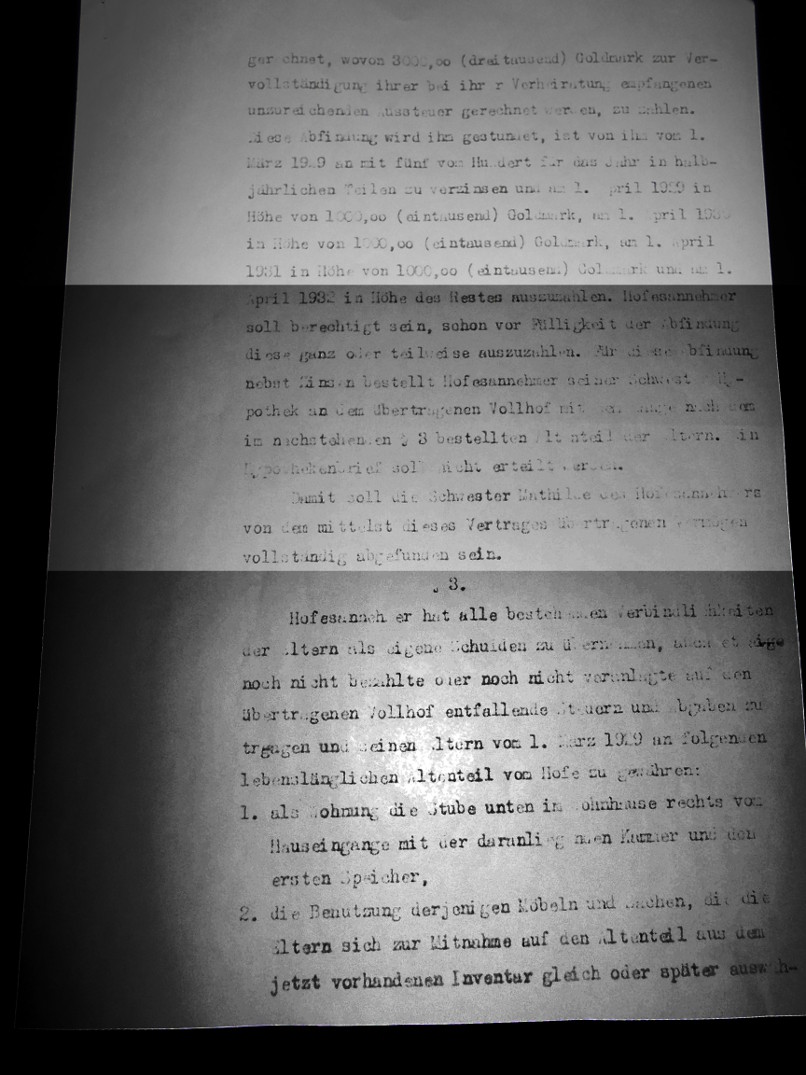 gerechnet, wovon 3000,oo (dreitausend) Goldmark zur Ver-
vollständigung ihrer bei ihrer Verheiratung empfangenen
unzureichenden Aussteuer gerechnet werden, zu zahlen.
Diese Abfindung wird ihm gestundet, ist von ihm vom 1.
März 1929 an mit fünf vom Hundert für das Jahr in halb-
jährlichen Teilen zu verzinsen und am 1. April 1929 in
Höhe von 1000,oo (eintausend) Goldmark, am 1. April 1930
in Höhe von 1000,oo (eintausend) Goldmark, am 1. April
1931 in Höhe von 1000,oo (eintausend) Goldmark und am 1.
April 1932 in Höhe des Restes auszuzahlen. Hofesannehmer
soll berechtigt sein, schon vor Fälligkeit der Abfindung
diese ganz oder teilweise auszuzahlen. Für diese Abfindung
nebst Zinsen bestellt Hofesannehmer seiner Schwester Hy-
pothek an dem übertragenen Vollhof mit dem Range nach dem
im nachstehenden § 3 bestellten Altenteil der Eltern. Ein
Hypothekenbrief soll nicht erteilt werden.
Damit soll die Schwester Mathilde des Hofesannehmers
von dem mittelst dieses Vertrages übertragenen Vermögen
vollständig abgefunden sein.
§ 3.
Hofesannehmer hat alle bestehenden Verbindlichkeiten
der Eltern als eigene Schulden zu übernehmen, auch etwaige
noch nicht bezahlte oder noch nicht veranlagte auf den
übertragenen Vollhof entfallende Steuern und Abgaben zu
trgagen und seinen Eltern vom 1. März 1929 an folgenden
lebenslänglichen Altenteil vom Hofe zu gewähren:
1. als Wohnung die Stube unten im Wohnhause rechts vom
Hauseingange mit der daranliegenden Kammer und den
ersten Speicher,
2. die Benutzung derjenigen Möbeln und Sachen, die die
Eltern sich zur Mitnahme auf den Altenteil aus dem
jetzt vorhandenen Inventar gleich oder später auswäh-